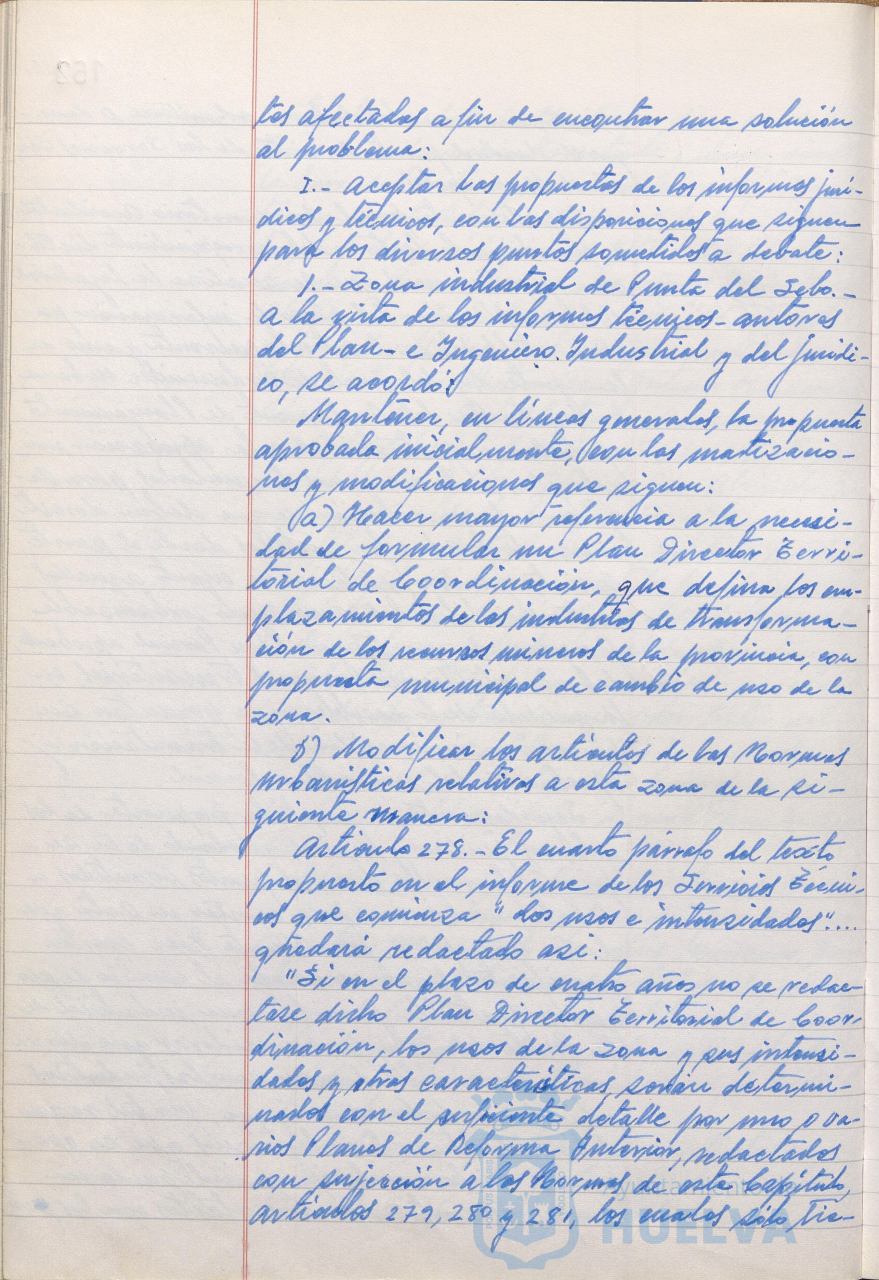 tos afectados a fin de encontrar una solución
al problema:
I.- Aceptar las propuestas de los informes jurí-
dicos y técnicos, con las disposiciones que siguen
para los diversos puntos sometidos a debate:
1.- Zona industrial de Punta del Sebo.-
A la vista de los informes técnicos - autores
del Plan - e Ingeniero Industrial y del jurídi-
co, se acordó:
Mantener, en líneas generales, la propuesta
aprobada inicialmente, con las matizacio-
nes y modificaciones que siguen:
a) Hacer mayor referencia a la necesi-
dad de formular un Plan Director Terri-
torial de Coordinación, que defina los em-
plazamientos de las industrias de transforma-
ción de los recursos mineros de la provincia, con
propuesta municipal de cambio de uso de la
zona.
b) Modificar los artículos de las Normas
urbanísticas relativos a esta zona de la si-
guiente manera:
Artículo 278.- El cuarto párrafo del texto
propuesto en el informe de los Servicios Técni-
cos que comienza "Los usos e intensidades"....
quedará redactado así:
"Si en el plazo de cuatro años no se redac-
tase dicho Plan Director Territorial de Coor-
dinación, los usos de la zona y sus intensi-
dades y otras características, serán determi-
nados con el suficiente detalle por uno o va-
rios Planes de Reforma Interior, redactados
con sujección a las Normas de este Capítulo,
artículos 279, 280 y 281, los cuales sólo tie-
Ayuntamiento
HUELVA